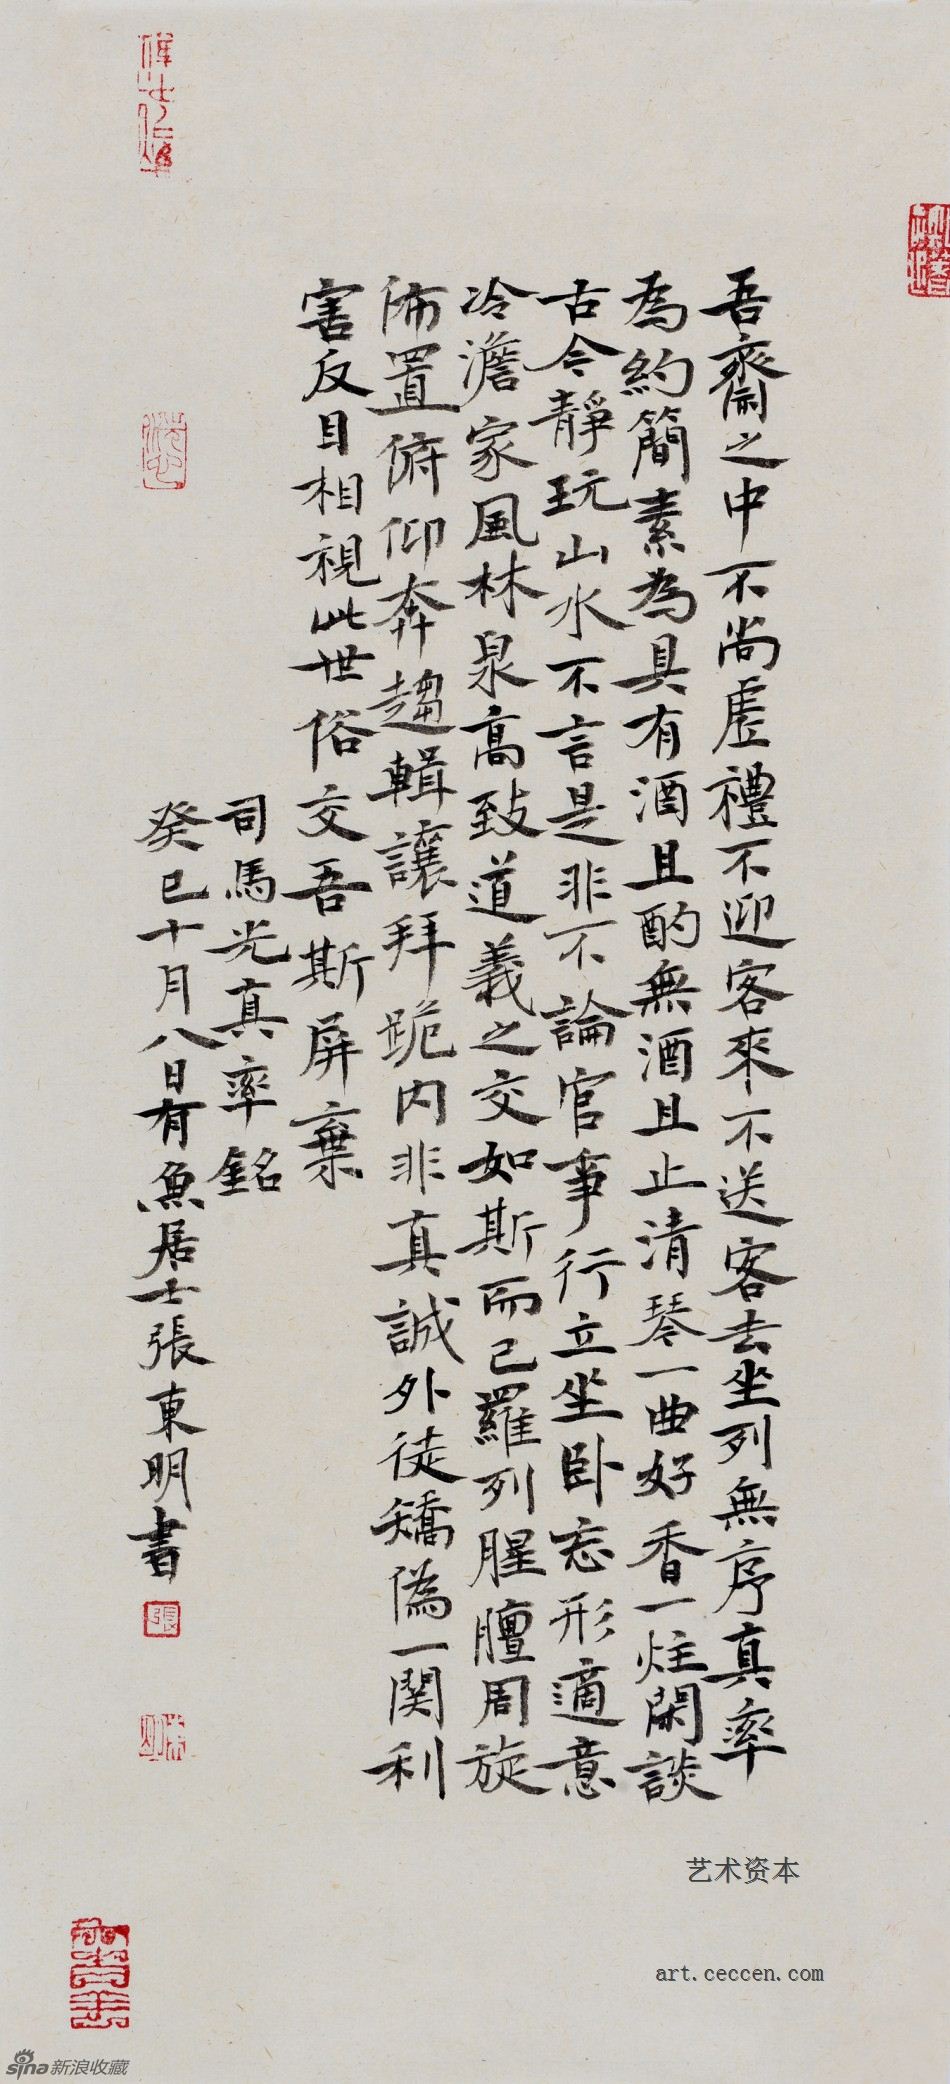 吾齋之中不尚虛禮不迎客來不送客去坐列無序真率
為約簡素為具有酒且酌無酒且止清琴一曲好香一炷閑談
古今靜玩山水不言是非不論官事行立坐臥忘形適意
冷澹家風林泉高致道義之交如斯而已羅列腥膻周旋
佈置俯仰奔趨輯讓拜跪内非真誠外徒矯偽一関利
害反目相視此世俗交吾斯屏棄
司馬光真率銘
癸巳十月八日有魚居士張東明書
張
艺术资本
art.ceccen.com
sina新浪收藏